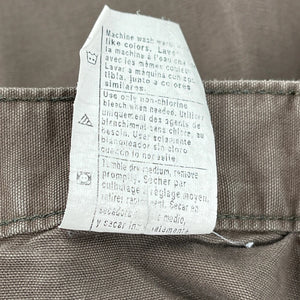 Machine wash warm,
like colors. Laver
la machine à l'eau
avec les mêmes
Lavar a máquina con agua
tibia, junto a colores
similares.
Use only non-chlorine
bleach when needed. Utiliser
uniquement des agents de
blanchiment sans chlore, au
besoin. Usar un
blanqueador sin cloro
cuando lo necesite.
Tumble dry medium, remove
promptly. Sécher par
culbutage à réglage moyen,
retirer rapidement. Secar en
secadora medio,
y sacar inmediatamente.